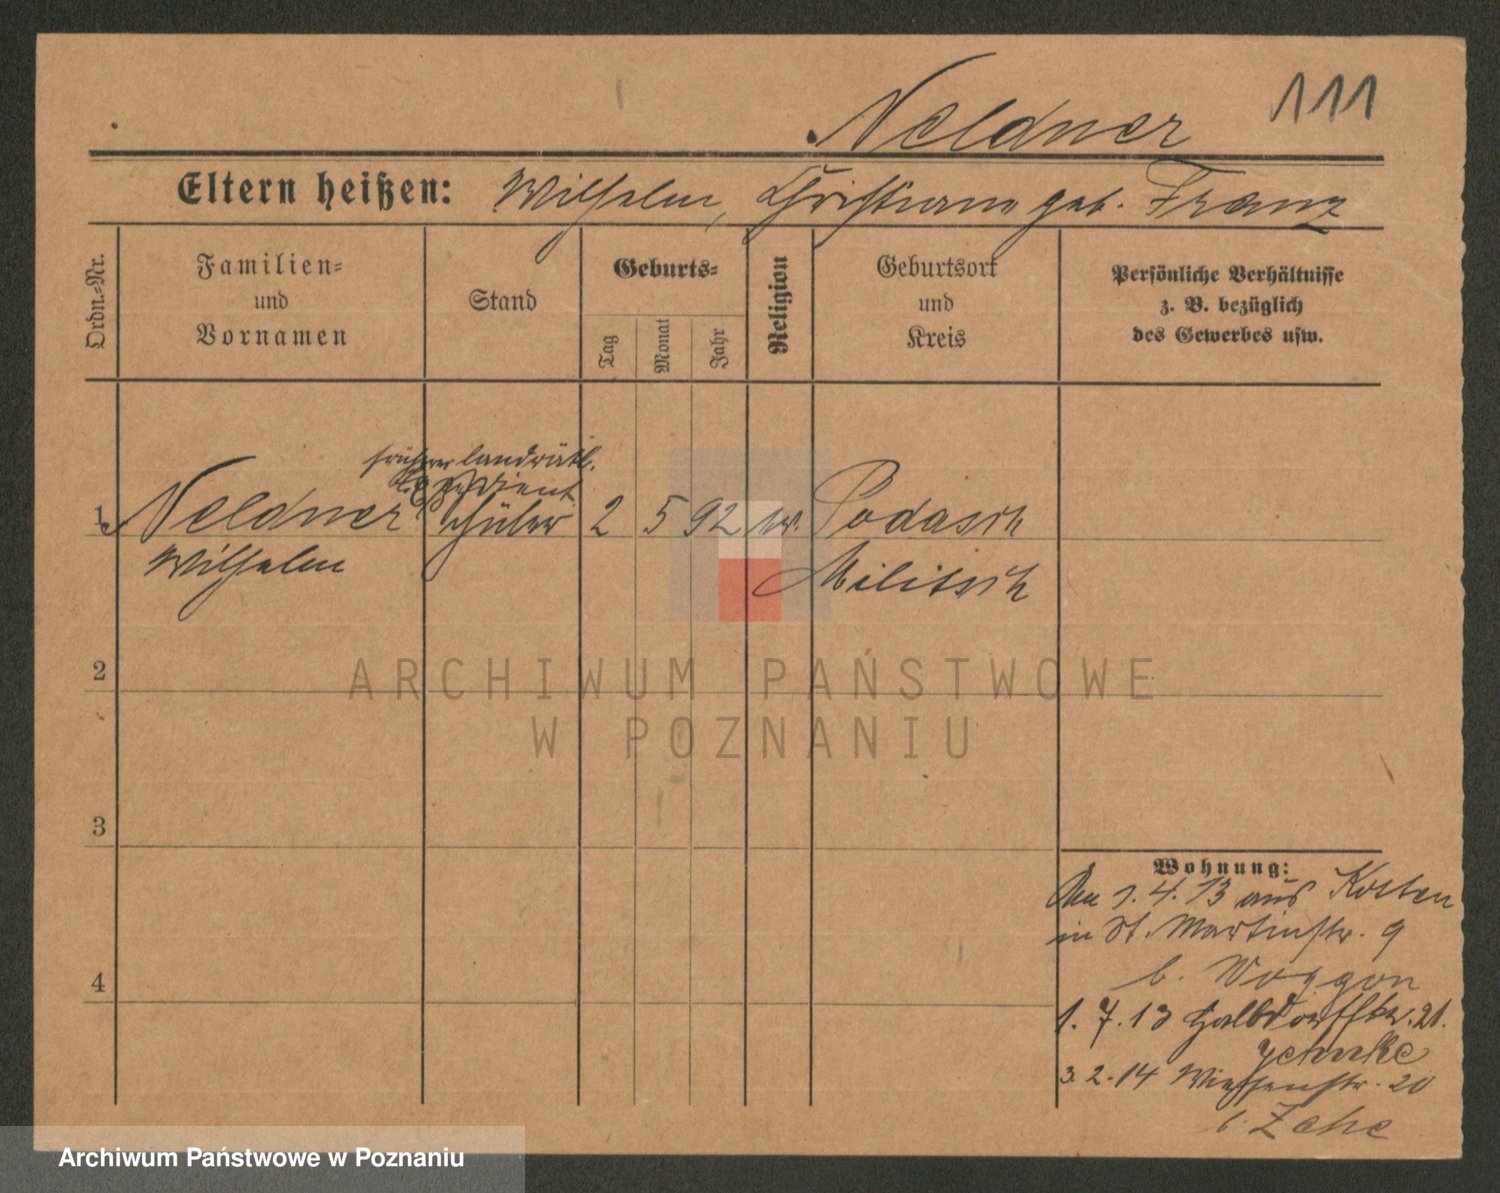 Neldner
111
Eltern heißen: Wilhelm, Christiane geb. Franz
Ordn.-Nr.
Familien-
und
Vornamen
Stand
Geburts-
Tag
Monat
Jahr
Religion
Geburtsort
und
Kreis
Persönliche Verhältnisse
z. B. bezüglich
des Gewerbes usw.
früherer landrätl.
1 Neldner Schüler 2 5 92 ev. Podasch
Wilhelm Militsch
2
3
4
Wohnung:
1.4.13 aus Kosten
in St. Martinstr. 9
b. Woggon
1.7.13 Halbdorfstr. 21.
3.2.14 Wiesenstr. 20
b. Zehe
ARCHIWUM PAŃSTWOWE
W POZNANIU
Archiwum Państwowe w Poznaniu